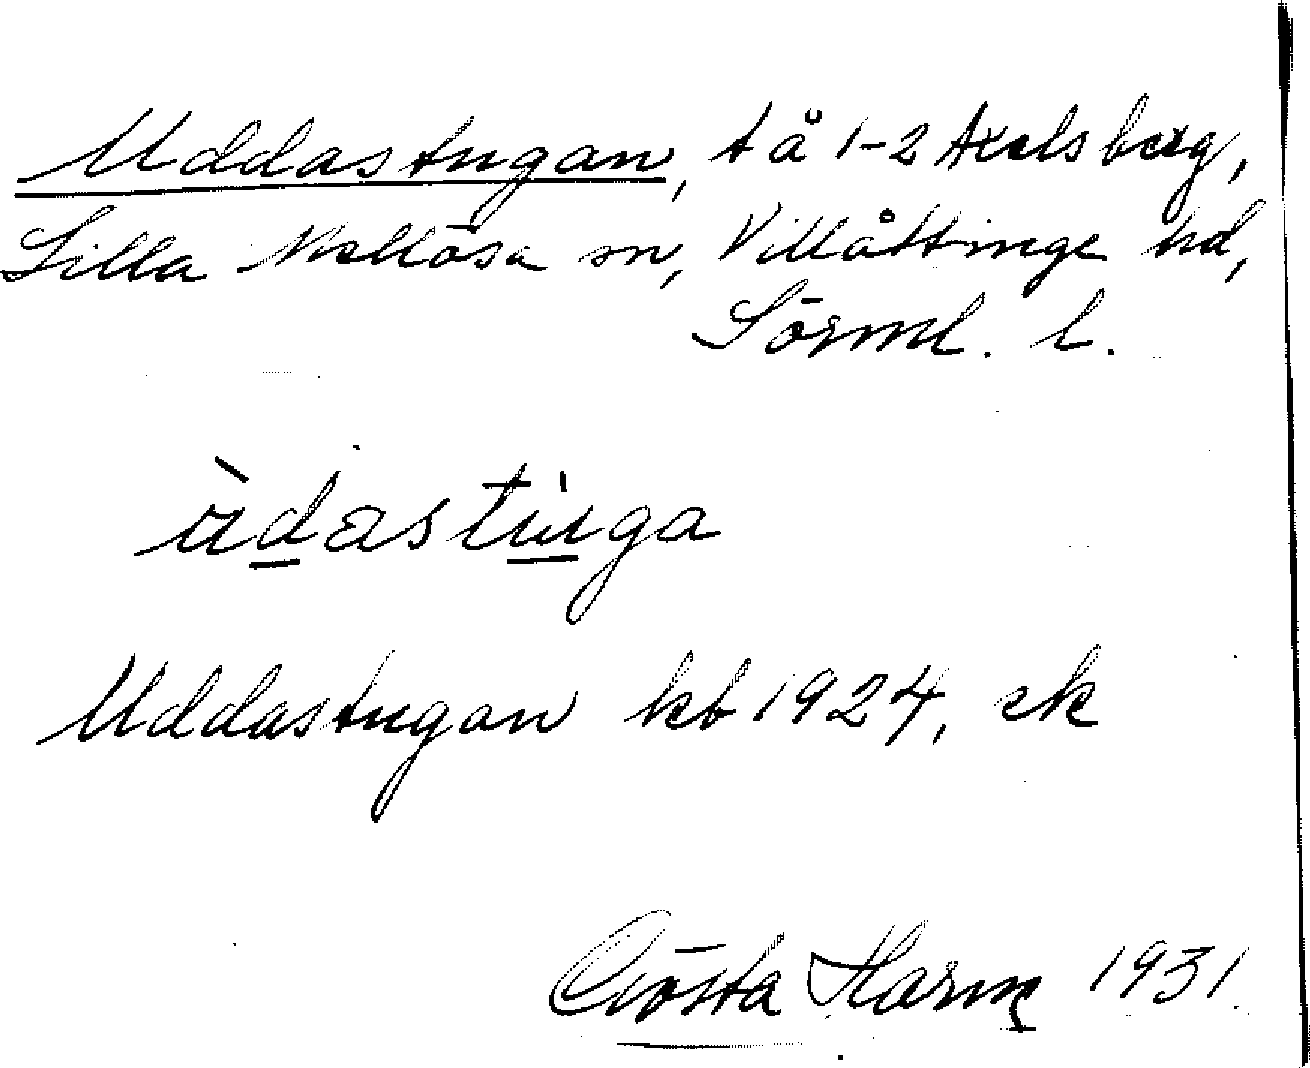 Uddastugan, t å 1-2 Axelsberg,
Lilla Mellösa sn, Villåttinge hd,
Sörml. l.
ùdastùga
Uddastugan kb 1924, ek
Gösta Harm 1931.